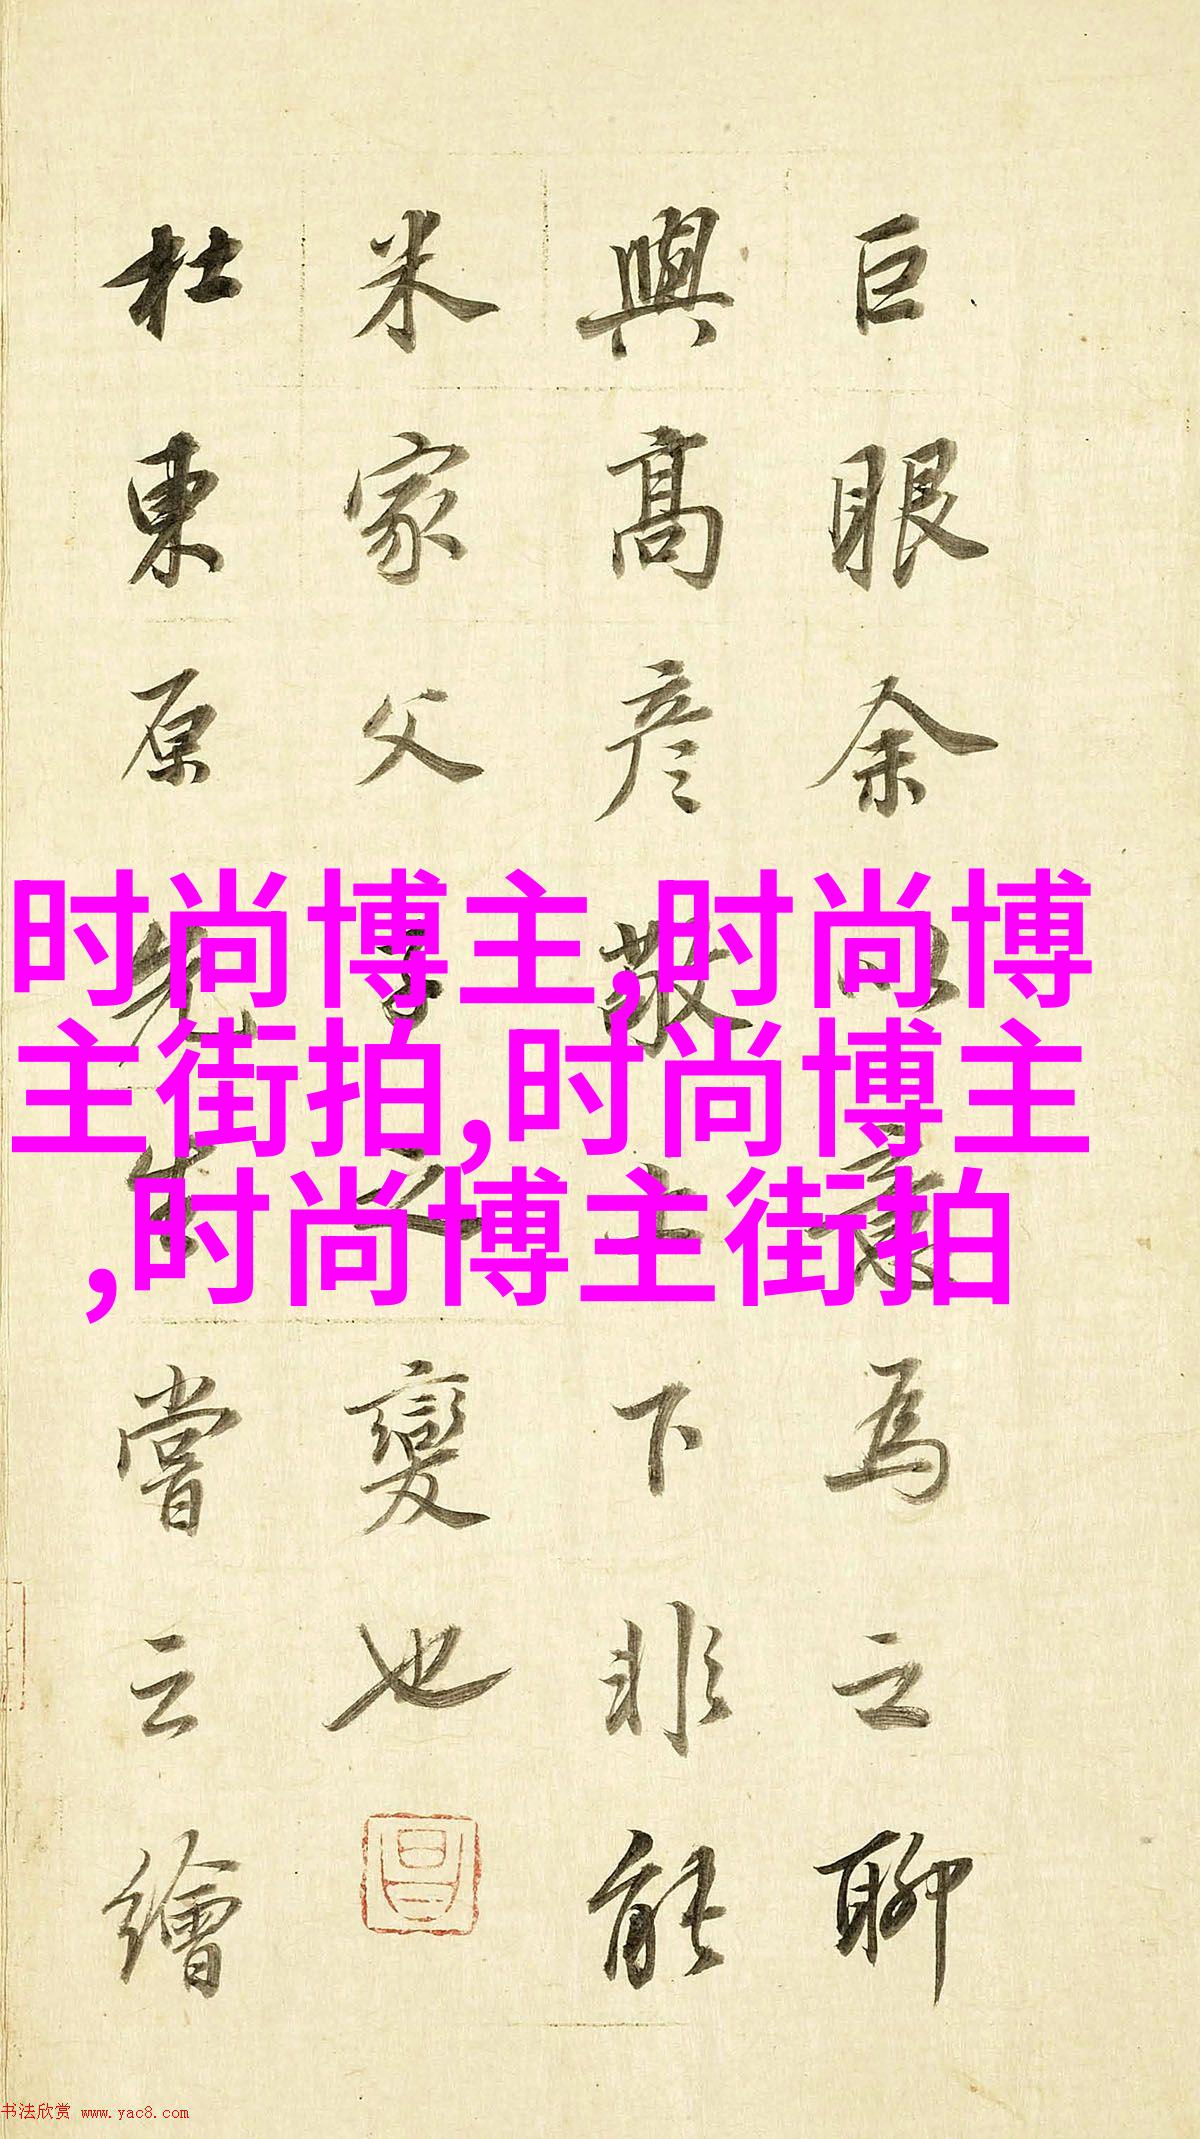 巨眼余以意為之聊
與高彥敬上下非能
米家父子之變也
昌
杜東原先生嘗云繪
时尚博主,时尚博
主街拍,时尚博主
,时尚博主街拍
书法欣赏 www.yac8.com